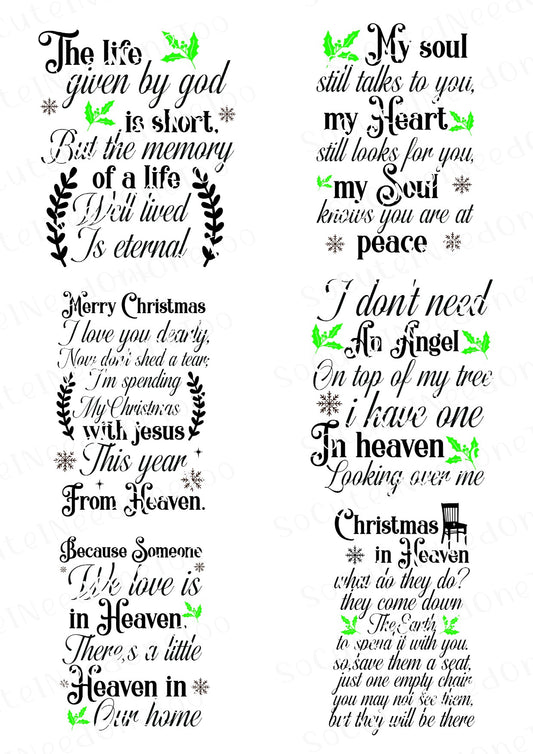 The life
given by god
is short,
But the memory
of a life
Well lived
Is eternal
My soul
still talks to you,
my Heart
still looks for you,
my Soul
knows you are at
peace
Merry Christmas
I love you dearly,
Now don't shed a tear;
I'm spending
My Christmas
with Jesus
This year
From Heaven.
I don't need
An Angel
On top of my tree
i have one
In heaven
Looking over me
Because Someone
We love is
in Heaven,
There,s a little
Heaven in
Our home
Christmas
in Heaven
what do they do?
they come down
The Earth,
to spend it with you.
so,save them a seat,
just one empty chair
you may not see them,
but they will be there